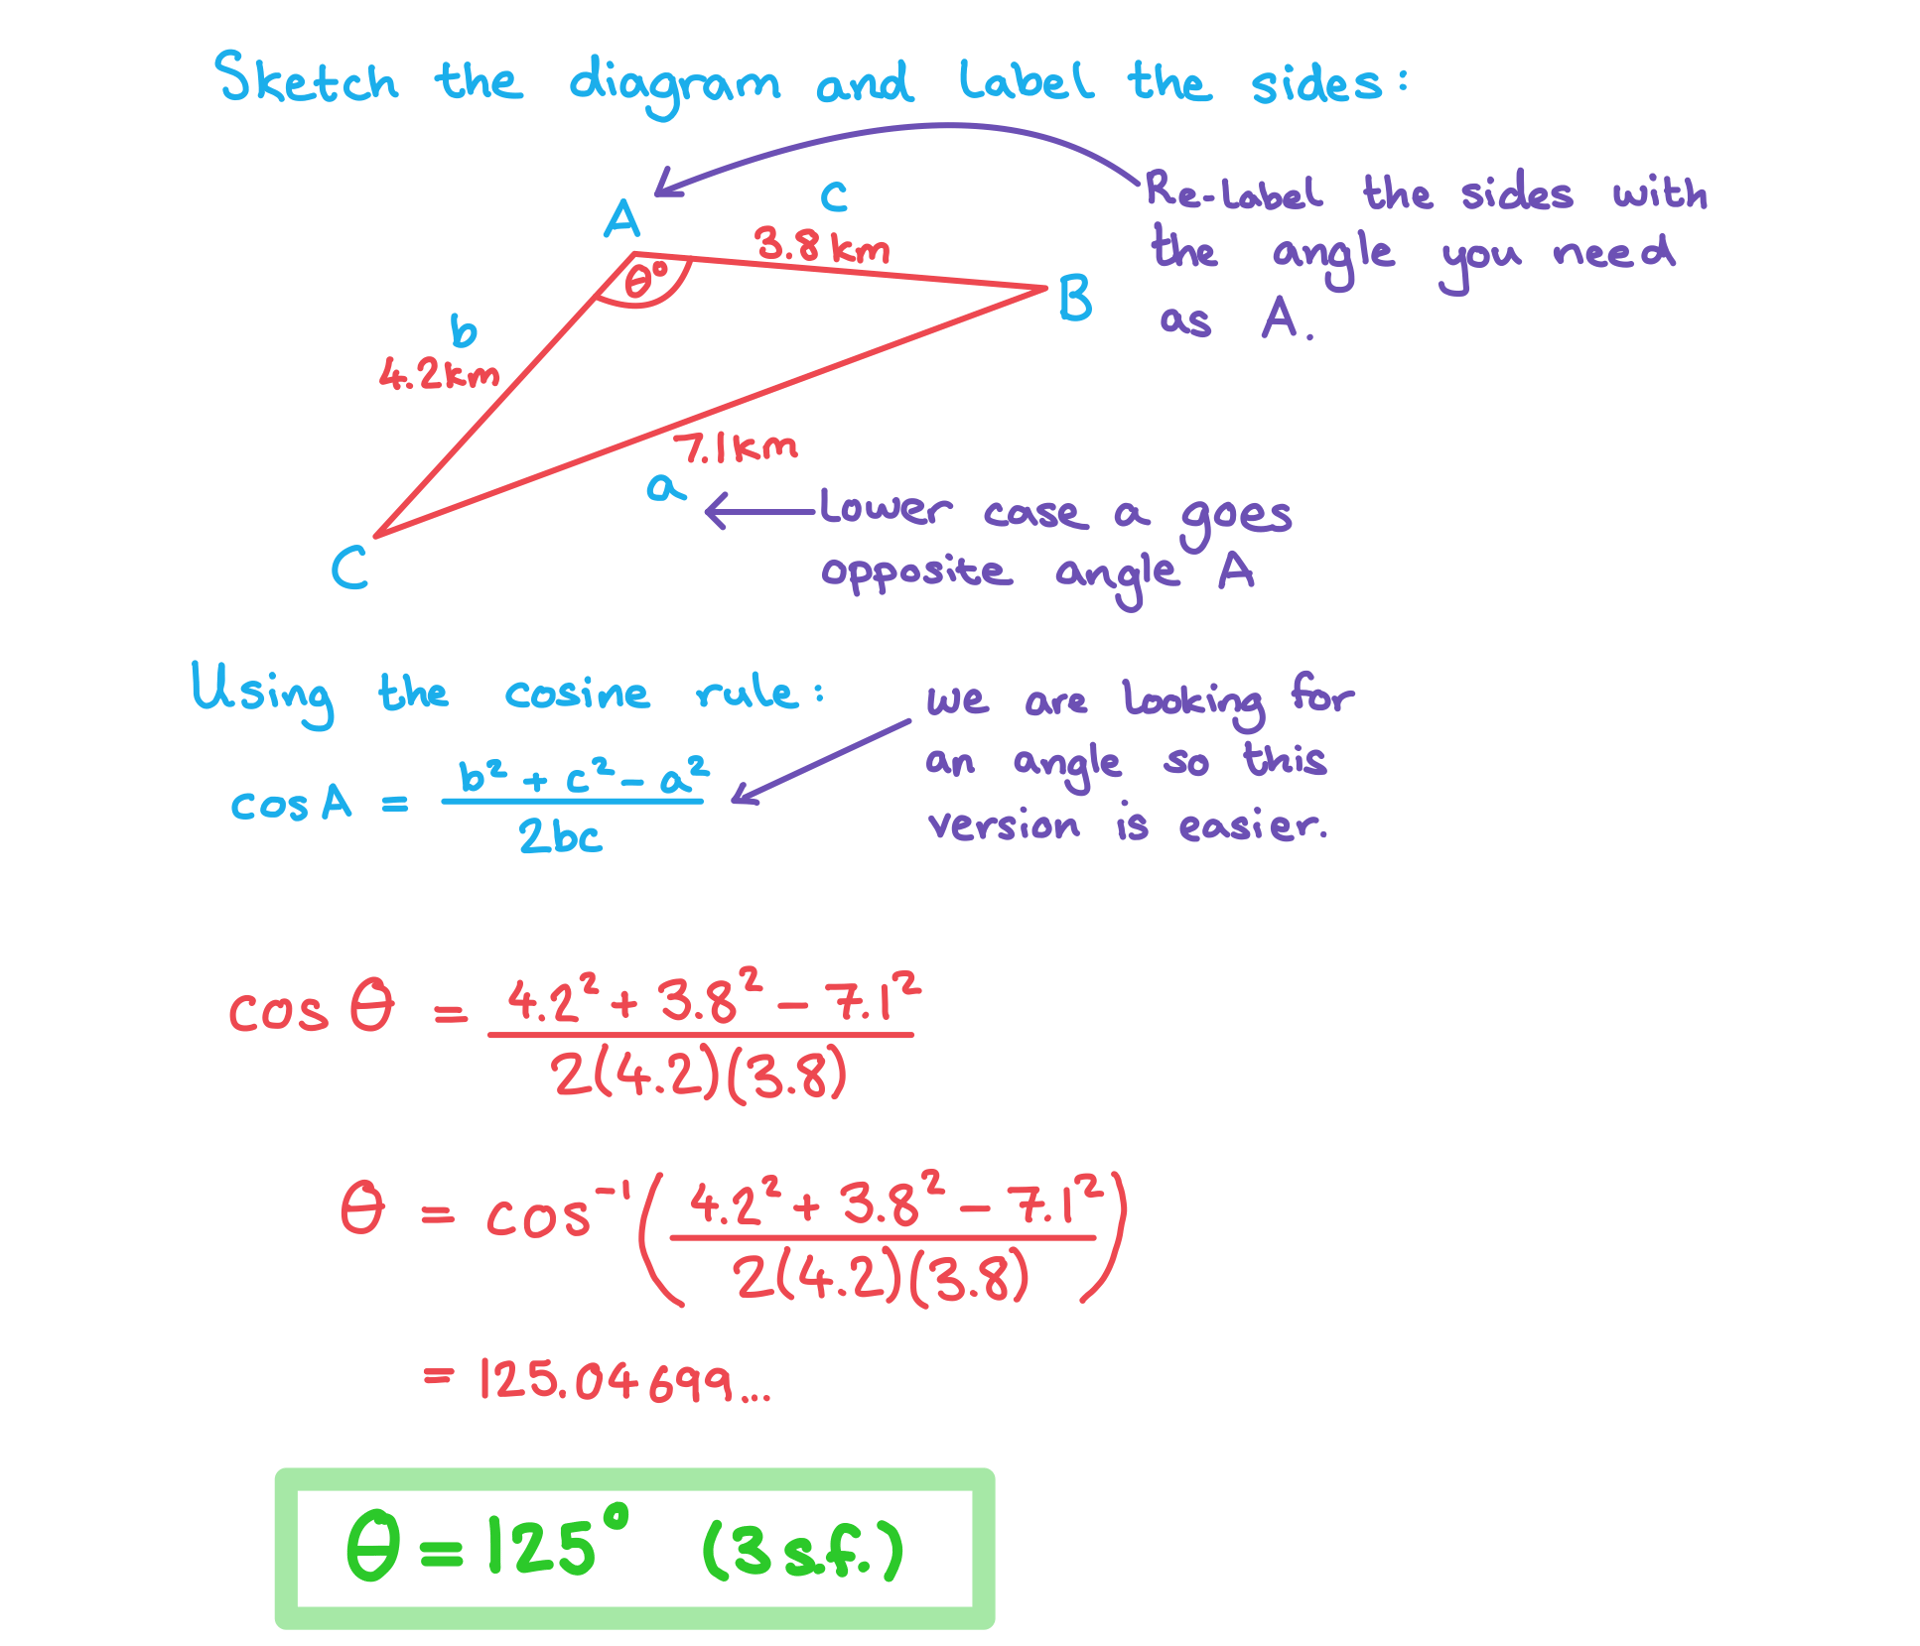 Sketch the diagram and label the sides:
A
c
3.8km
θ°
B
b
4.2km
7.1km
a
C
Re-label the sides with
the angle you need
as A.
Lower case a goes
opposite angle A
Using the cosine rule:
cosA = b² + c² − a² / 2bc
we are looking for
an angle so this
version is easier.
cos θ = 4.2² + 3.8² − 7.1² / 2(4.2)(3.8)
θ = cos⁻¹(4.2² + 3.8² − 7.1² / 2(4.2)(3.8))
= 125.04699...
θ = 125° (3 s.f.)